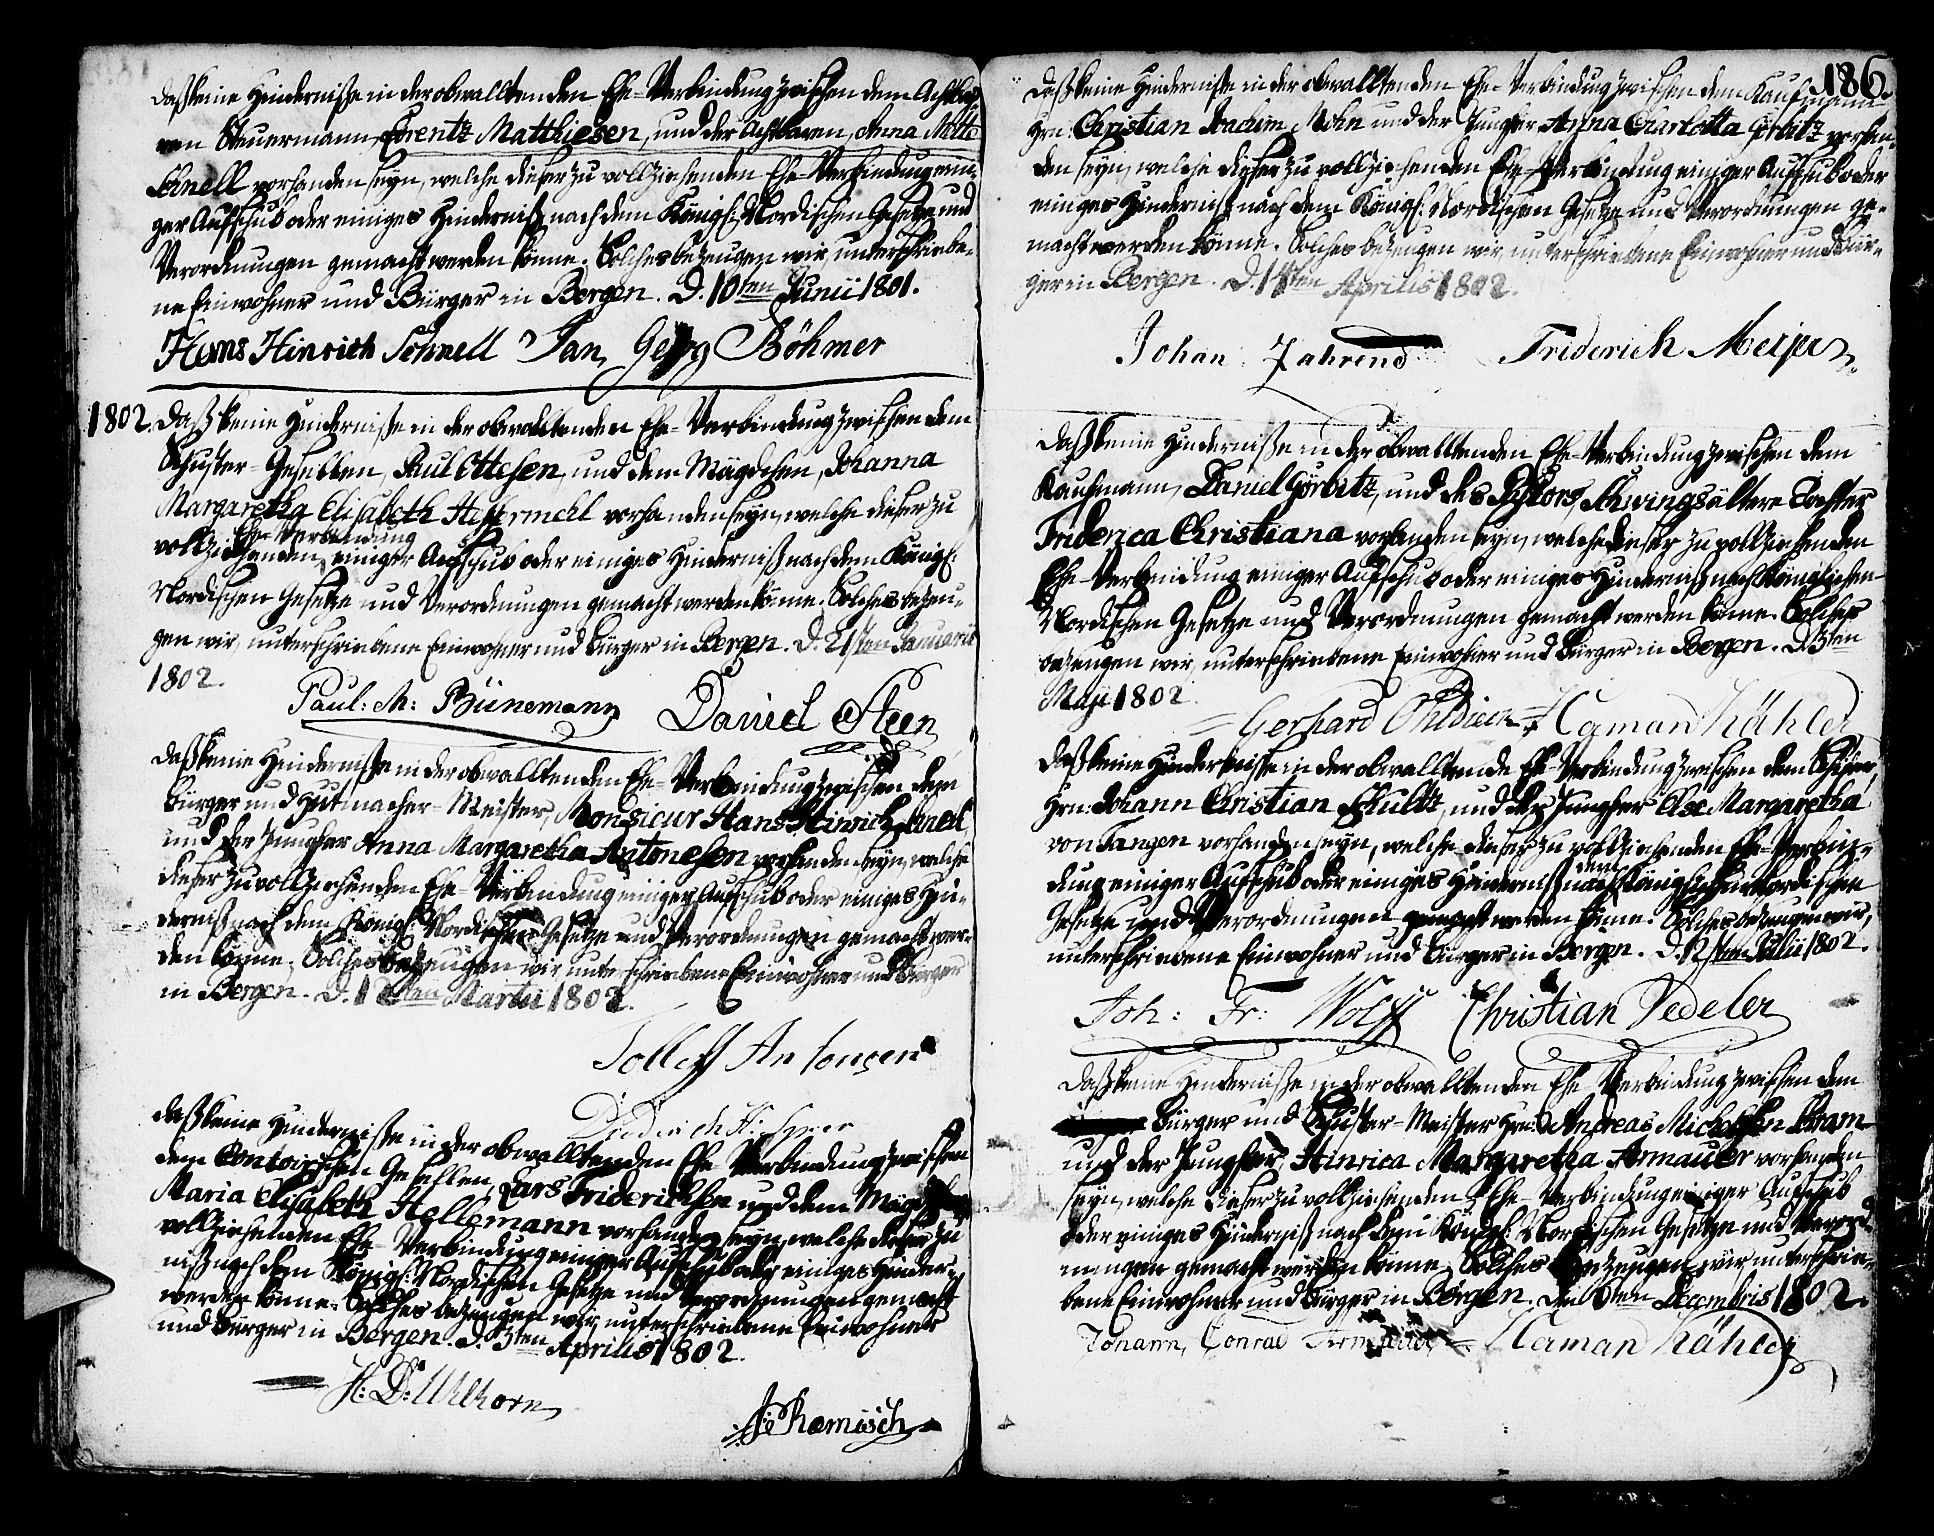 Daß keine Hinderniße in der obwalltenden Ehe-Verbindung zwischen dem Achtba-
ren Steuermann, Lorentz Matthiesen, und der Achtbaren, Anna Mette
Schnell vorhanden seyn, welche dieser zu vollziehenden Ehe-Verbindung eini-
ger Aufschub oder einiges Hinderniß nach dem Königl: Nordischen Gesetze und
Verordnungen gemacht werden könne. Solches bezeugen wir, unterschriebe-
ne Einwohner und Bürger in Bergen. D. 10ten Junii 1801.
Hans Hinrich Schnell Jan Georg Böhmer
1802. Daß keine Hinderniße in der obwalltenden Ehe-Verbindung zwischen dem
Schuster-Gesellen, Paul Ottesen, und dem Mägdchen, Johanna
Margaretha Elisabeth Heßermehl vorhanden seyn, welche dieser zu
Ehe-Verbindung
vollziehenden, einiger Aufschub oder einiges Hinderniß nach dem Königl:
Nordischen Gesetze und Verordnungen gemacht werden könne. Solches bezeu-
gen wir, unterschriebene Einwohner und Bürger in Bergen. D. 21sten Januarii
1802.
Paul: M: Bünemann Daniel Steen
Daß keine Hinderniße in der obwalltenden Ehe-Verbindung zwischen dem
Bürger und Hutmacher-Meister, Monsieur Hans Hinrich Schnell,
und der Jungfer Anna Margaretha Antonesen vorhanden seyn, welche
dieser zu vollziehenden Ehe-Verbindung einiger Aufschub oder einiges Hin-
derniß nach dem Königl: Nordischen Gesetze und Verordnungen gemacht wer-
den könne. Solches bezeugen wir unterschriebene Einwohner und Bürger
in Bergen. D. Martii 1802.
Tolleff Antonsen
Diederich
Daß keine Hinderniße in der obwalltenden Ehe-Verbindung zwischen
dem Contoirschen Gesellen, Lars Friderichsen und dem Mägdchen
Maria Elisabeth Hollemann vorhanden seyn, welche dieser zu
vollziehenden Ehe-Verbindung einiger Aufschub oder einiges Hinder-
niß nach dem Königl: Nordischen Gesetze und Verordnungen gemacht
werden könne. Solches bezeugen wir, unterschriebene Einwohner
und Bürger in Bergen. D. 3ten Aprilis 1802.
H: D: Uhlhorn
J: Ramisch
186.
Daß keine Hinderniße in der obwalltenden Ehe-Verbindung zwischen dem Kaufmann
Hrn: Christian Joachim Mohn und der Jungfer Anna Charlotta Görbitz vorhan-
den seyn, welche dieser zu vollziehenden Ehe-Verbindung einiger Aufschub oder
einiges Hinderniß nach dem Königl: Nordischen Gesetze und Verordnungen ge-
macht werden könne. Solches bezeugen wir, unterschriebene Einwohner und Bür-
ger in Bergen. D. 14ten Aprilis 1802.
Johan Fahrend Friderich Meijer
Daß keine Hinderniße in der obwalltenden Ehe-Verbindung zwischen dem
Kaufmann, Daniel Görbitz, und des Pastors, Schwings ältere Tochter
Friderica Christiana vorhanden seyn, welche dieser zu vollziehenden
Ehe-Verbindung einiger Aufschub oder einiges Hinderniß nach Königlichen-
Nordischen Gesetze und Verordnungen gemacht werden könne. Solches
bezeugen wir, unterschriebene Einwohner und Bürger in Bergen. D. 3ten
Maji 1802.
Gerhard Herman Kähler
Daß keine Hinderniße in der obwalltende Ehe-Verbindung zwischen dem Schiffer,
Hrn: Johann Christian Schultz, und der Jungfer Else Margaretha
von Tangen vorhanden seyn, welche dieser zu vollziehenden Ehe-Verbin-
dem
dung einiger Aufschub oder einiges Hinderniß nach Königlichen Nordischen
Gesetze und Verordnungen gemacht werden könne. Solches bezeugen wir,
unterschriebene Einwohner und Bürger in Bergen. D. 12ten Julii 1802.
Joh: Fr: Wolff Christian Dedeler
Daß keine Hinderniße in der obwalltenden Ehe-Verbindung zwischen dem
Bürger und Schuster-Meister Hrn: Andreas Michelssen Bram
und der Jungfer, Hinrica Margaretha Armauer vorhanden
seyn, welche dieser zu vollziehenden Ehe-Verbindung einiger Aufschub
oder einiges Hinderniß nach dem Königl: Nordischen Gesetze und Verord-
nungen gemacht werden könne. Solches bezeugen wir, unterschrie-
bene Einwohner und Bürger in Bergen. Den 6ten Decembris 1802.
Johann Conrad Armauer Herman Kähler